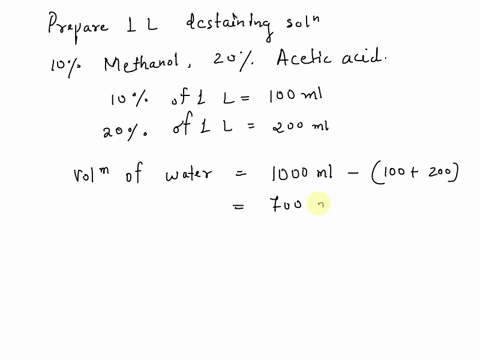 Prepare 1 L destaining solⁿ
10% Methanol, 20% Acetic acid.
10% of 1 L = 100 ml
20% of 1 L = 200 ml
Volᵐ of water = 1000 ml - (100 + 200)
= 700